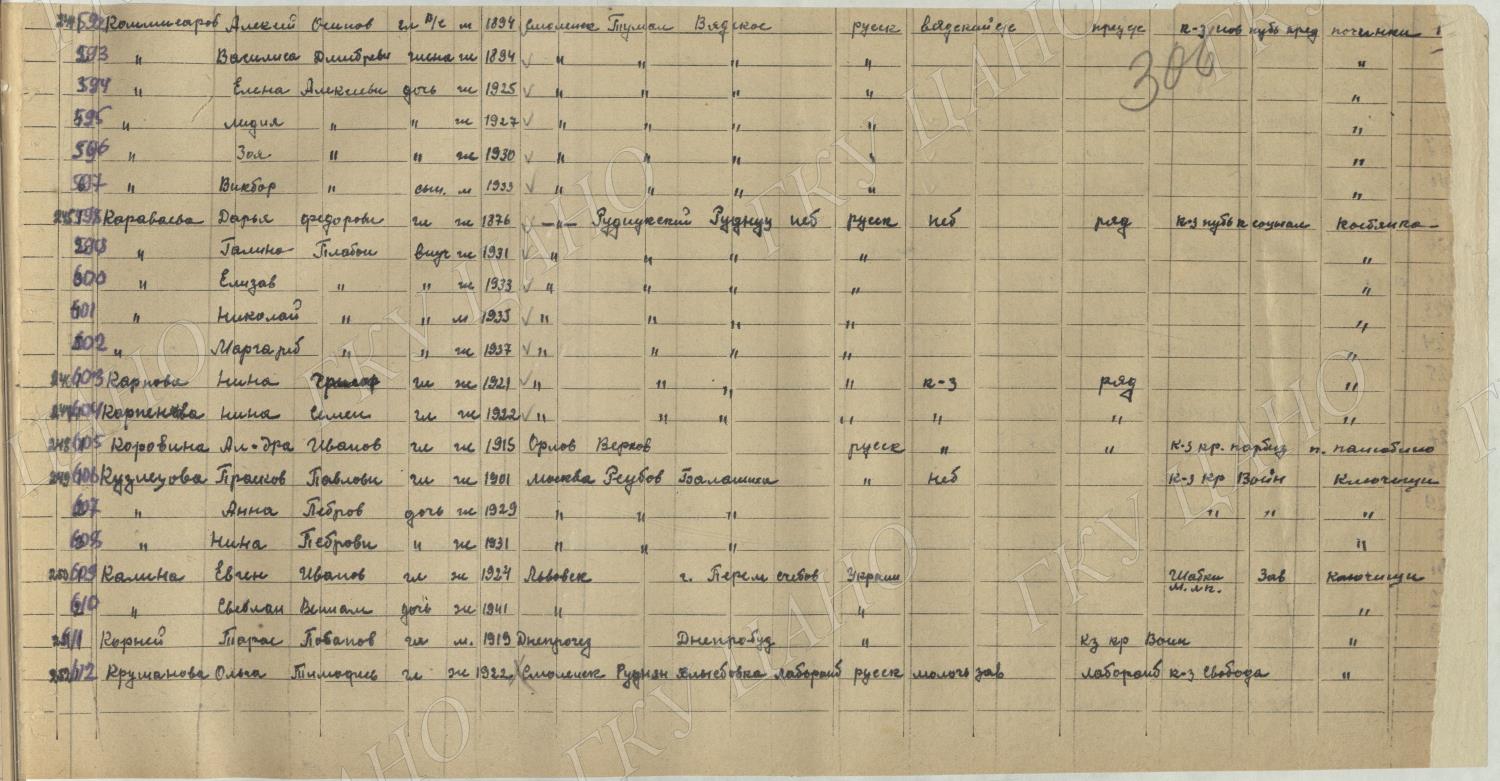 592 Коммисаров Алексей Осипов гл м 1894 Смоленск Туман Вядское русск вядский с/с пред с/с к-з нов путь пред починки
306
593 " Василиса Дмитреви ж 1894 ✓ " " " " "
594 " Елена Алексеевн дочь ж 1925 ✓ " " " " "
595 " Лидия " " ж 1927 ✓ " " " " "
596 " Зоя " " ж 1930 ✓ " " " " "
597 " Виктор " сын. м 1933 ✓ " " " " "
245 598 Караваева Дарья Федорови гл ж 1876 ✓ —"— Руднул неб русск неб ряд к-з путь к социал
" Галина Платон внуч ж 1931 ✓ " " " " "
600 " Елизав " " ж 1933 ✓ " " " " "
601 " Николай " " м 1935 ✓ " " " " "
602 " Маргарит " " ж 1937 ✓ " " " " "
603 Карпова Нина гл ж 1921 ✓ " " " " к-з ряд "
604 Карпенкова Нина Семен гл ж 1922 ✓ " " " " " " "
248 605 Коровина Ал-дра Иванов гл ж 1915 Орлов Верхов русск " " к-з кр.
249 606 Кузнецова Прасков Павловн гл ж 1901 Москва Реутов Балашиха " неб к-з кр Воин Ключищи
607 " Анна Петров дочь ж 1929 " " " " " "
608 " Нина Петровн " ж 1931 " " " "
250 609 Калина Евген Иванов гл ж 1924 Львовск г. Перем счетов Украин Зав Ключищи
610 " Светлан Вениам дочь ж 1941 " " "
611 Корней Тарас Потапов гл м. 1919 Днепрогэз Днепробуд " кз кр Воин "
252 612 Крушанова Ольга Тимофеев гл ж 1922 Смоленск Руднян лаборант русск молочь зав лаборант к-з Свобода "
ГКУ ЦАНО